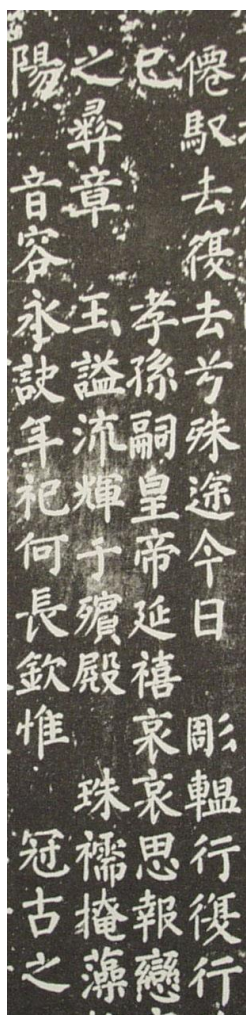 僊馭去復去兮殊途今日 彫輼行復行
巳 孝孫嗣皇帝延禧哀哀思報戀
之彝章 玉謚流輝于殯殿 珠襦掩藻
陽 音容永訣年祀何長欽惟 冠古之